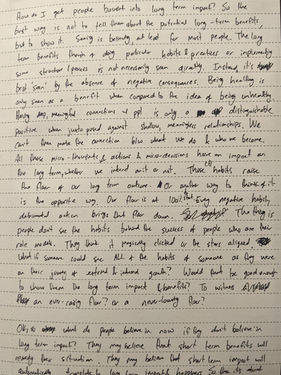 How do I get people bought into long term impact? So the
best way is not to tell them about the potential long-term benefits
but to show it. Seeing is believing, at least for most people. The long
term benefits of doing particular habits & practices or implementing
some structure/process is not necessarily seen directly. Instead it's
best seen by the absence of negative consequences. Being healthy is
only seen as a benefit when compared to the idea of being unhealthy.
Having meaningful connections w/ ppl is only a distinguishable
positive when juxtaposed against shallow, meaningless relationships. We
can't then make the connection b/w what we do & who we become.
All these micro-movements & actions & micro-decisions have an impact on
the long term, whether we intend on it or not. These habits raise
the floor of our long term outcome. Or another way to think of it
is the opposite way. Our floor is at 100%. Every negative habit,
detrimental action brings that floor down. The thing is
people don't see the habits behind the success of people who are their
role models. They think it magically clicked or the stars aligned
What if someone could see ALL of the habits of someone as they were
on their journey of external & internal growth? Would that be good enough
to show them the long term impact & benefits? To witness
an ever-rising floor? or a never-lowering floor?
Okay so what do people believe in now if they don't believe in
long term impact? They may believe that short term benefits will
remedy their situation. They may believe that short term impact will
automatically translate to long term impact & happiness. So it's about